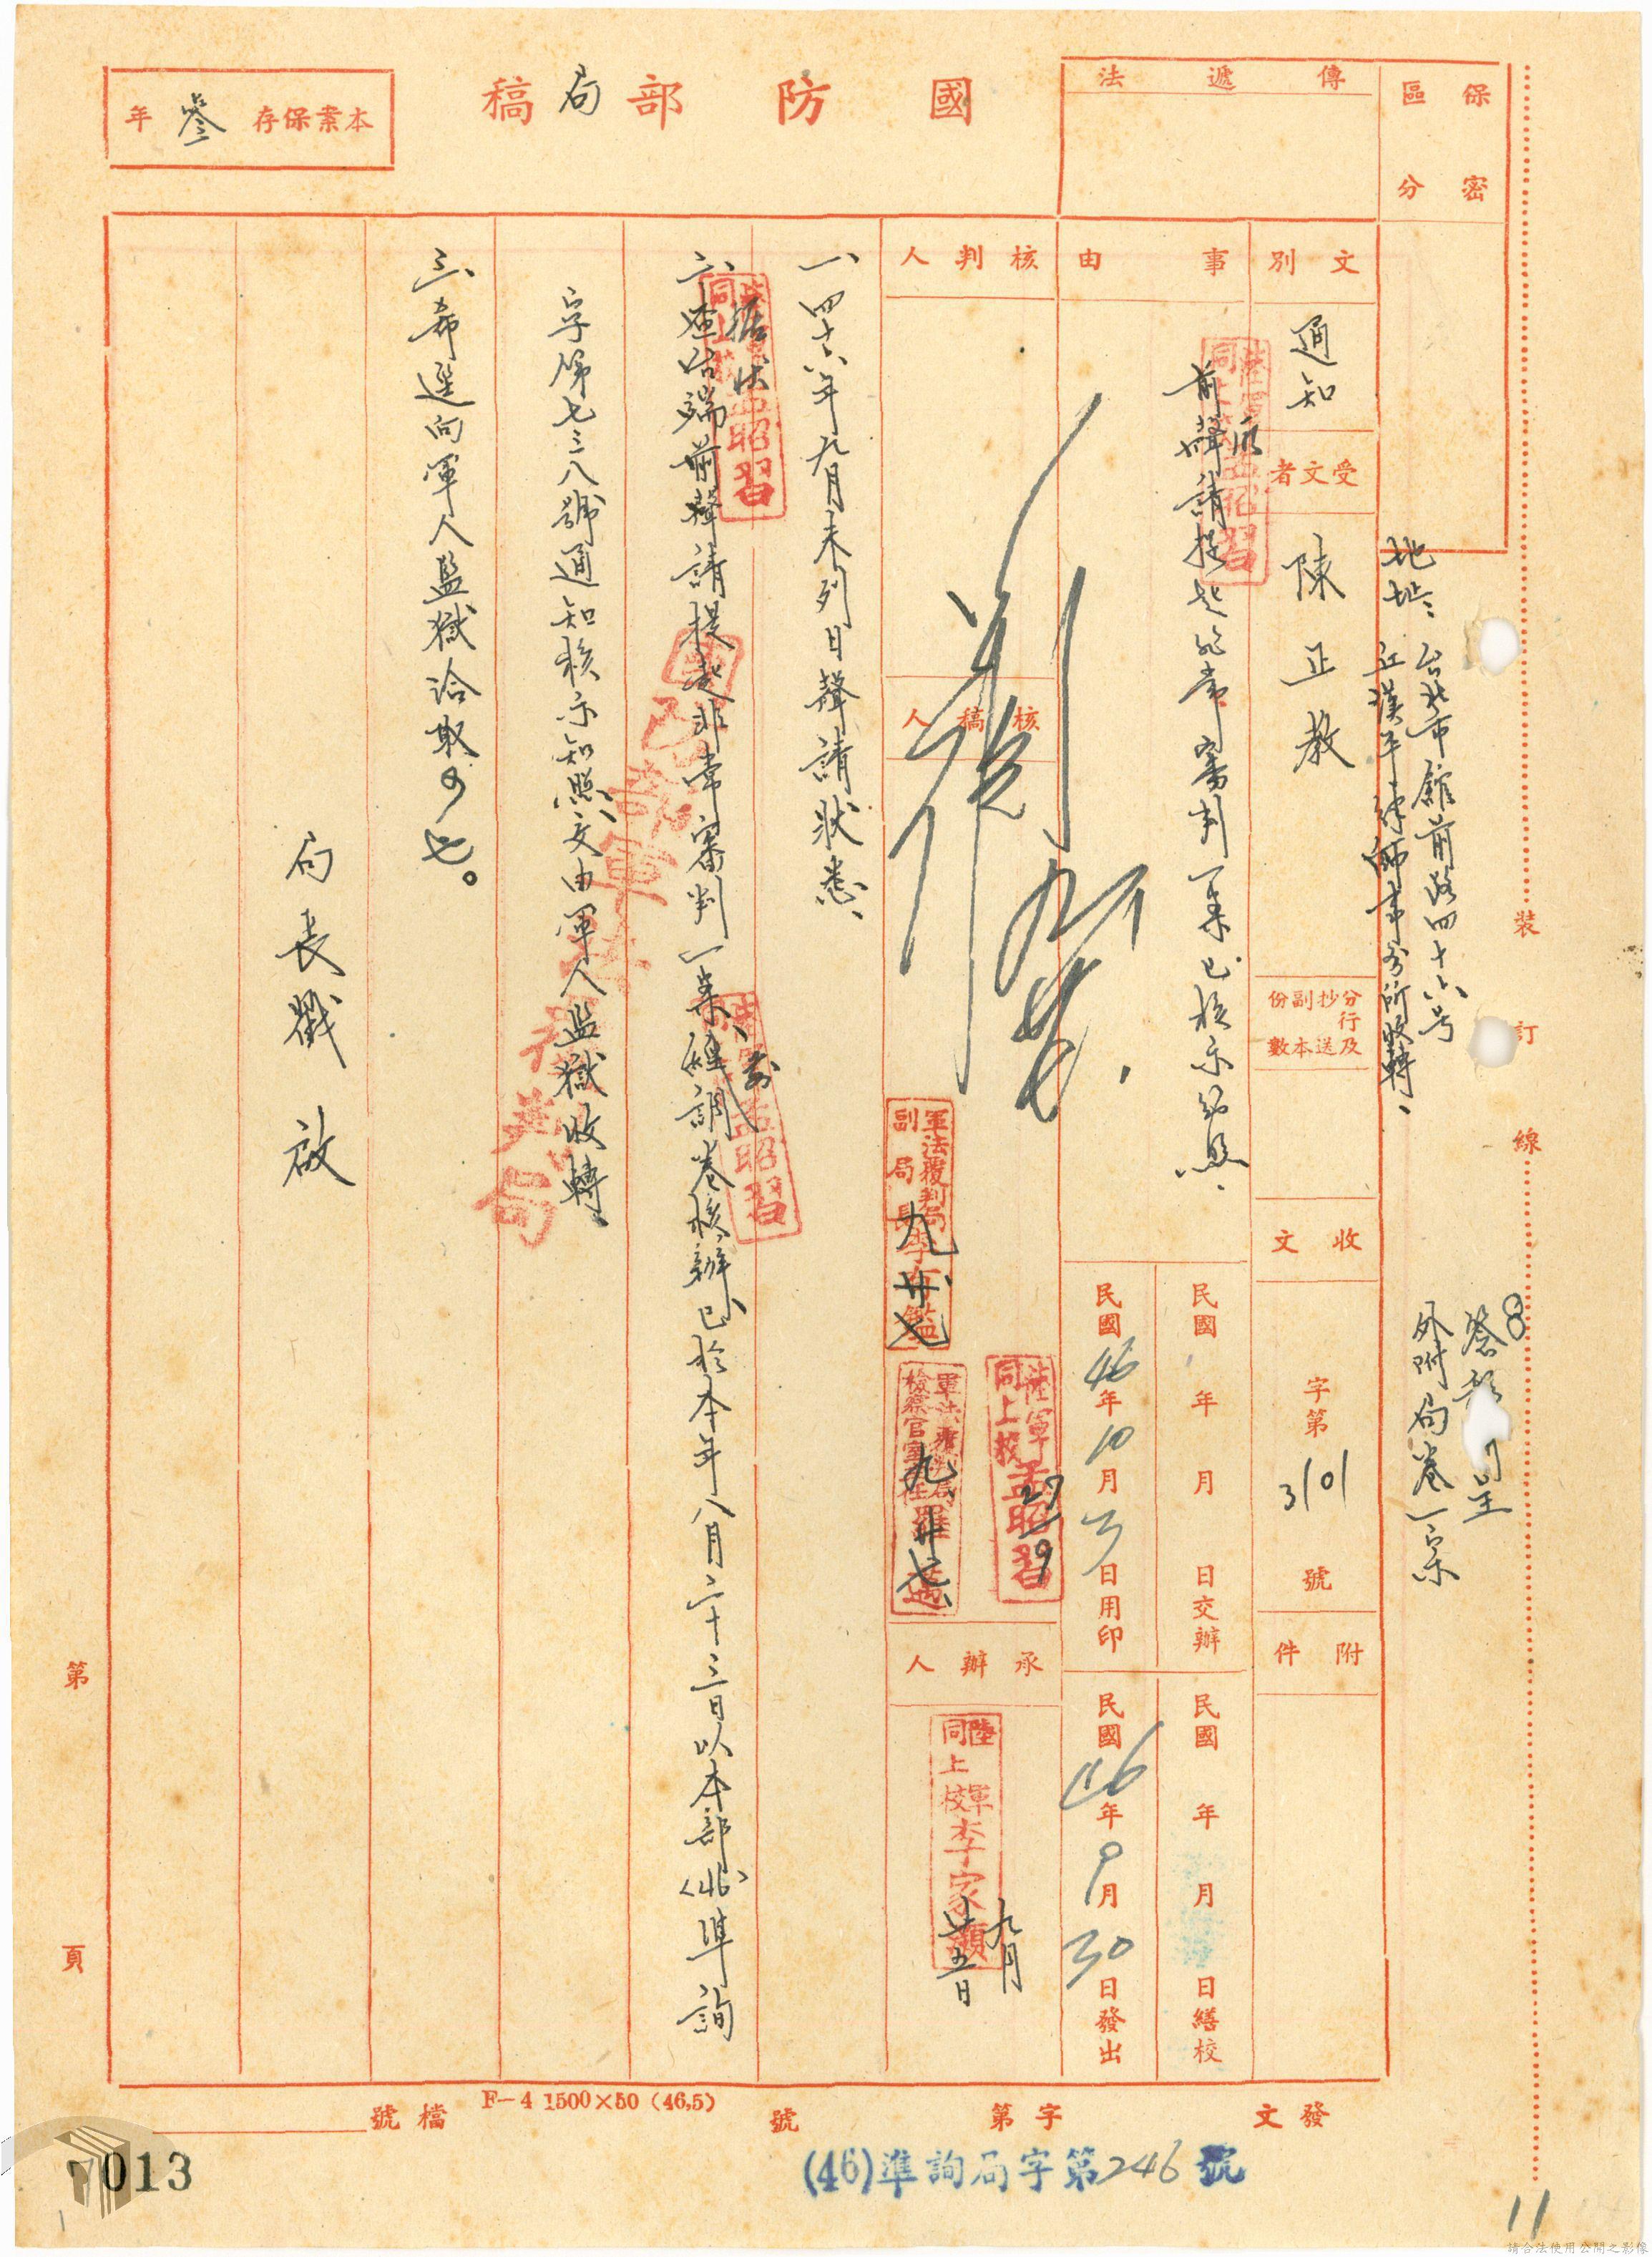 國防部局稿
本案保存參年
保密
區分
傳遞法
文別
通知
受文者
陳正教
地址：台北市館前路四十六号
江漢平律師事務所收轉、
分行及
抄送
副本
份數
收文
字第3101號
附件
外附局卷一宗
事由
前聲請提起非常審判一案已核示知照、
民國 年 月 日交辦
民國46年10月3日用印
民國 年 月 日繕校
民國46年9月30日發出
核判人
核稿人
軍法覆判局
副局長李
九廿七
軍法覆判局
檢察官室主任羅
九廿七
陸軍
同上校孟昭習
27/9
承辦人
陸軍
同上校李家顯
九月
廿五日
一、四十六年九月未列日聲請狀悉、
二、據狀
前聲請提起非常審判一案、經調卷核辦、已於本年八月二十三日以本部(46)準詢
字第七三八號通知核示知照、交由軍人監獄收轉、
三、希逕向軍人監獄洽取可也。
局長戳啟
國防部軍法覆判局
裝
訂
線
第
頁
發文
字第
號
檔號
F—4 1500×50 (46,5)
(46)準詢局字第246號
013
11
請合法使用公開之影像